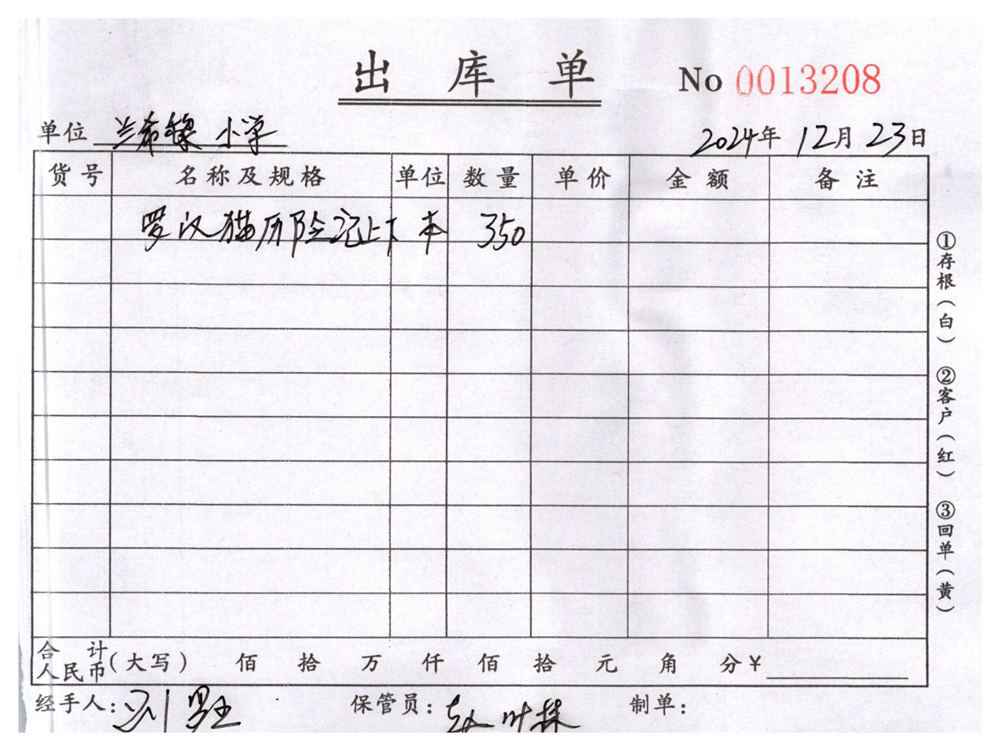 出 库 单
No 0013208
单位 兰希黎 小学
2024年 12月 23日
货号 名称及规格 单位 数量 单价 金额 备注
罗汉猫历险记上下 本 350
合计人民币(大写) 佰 拾 万 仟 佰 拾 元 角 分¥
经手人: 刘 保管员: 赵叶林 制单:
①存根(白) ②客户(红) ③回单(黄)